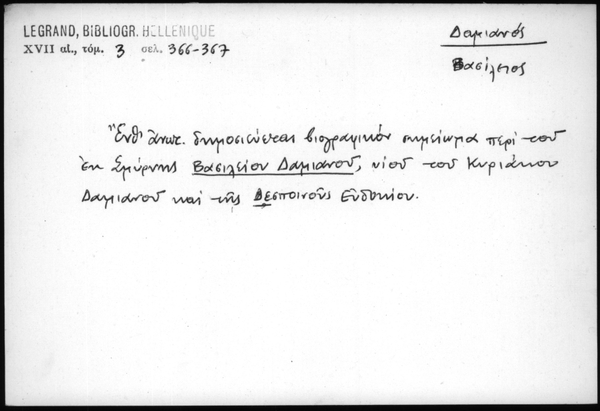 LEGRAND, BIBLIOGR. HELLENIQUE
XVII αἰ., τόμ. 3 σελ. 366-367
Δαμιανός
Βασίλειος
Ἔνθ' ἀνωτ. δημοσιεύεται βιογραφικόν σημείωμα περί τοῦ
ἐκ Σμύρνης Βασιλείου Δαμιανοῦ, υἱοῦ τοῦ Κυριάκου
Δαμιανοῦ καί τῆς Δεσποινοῦς Εὐδοκίου.